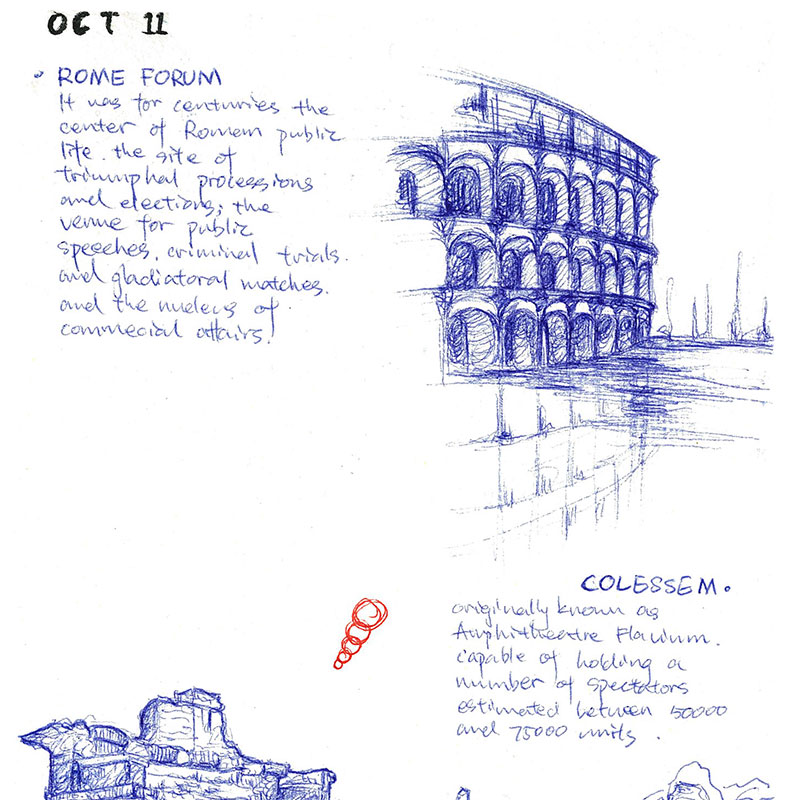 OCT 11
ROME FORUM
It was for centuries the
center of Romen public
life. the site of
triumphal processions
and elections; the
venue for public
speeches, criminal trials.
and gladiatoral matches.
and the nucleus of
commecial affairs.
COLESSEM.
originally known as
Amphitheatre Flavium.
capable of holding a
number of spectators
estimated between 50000
and 75000 units.